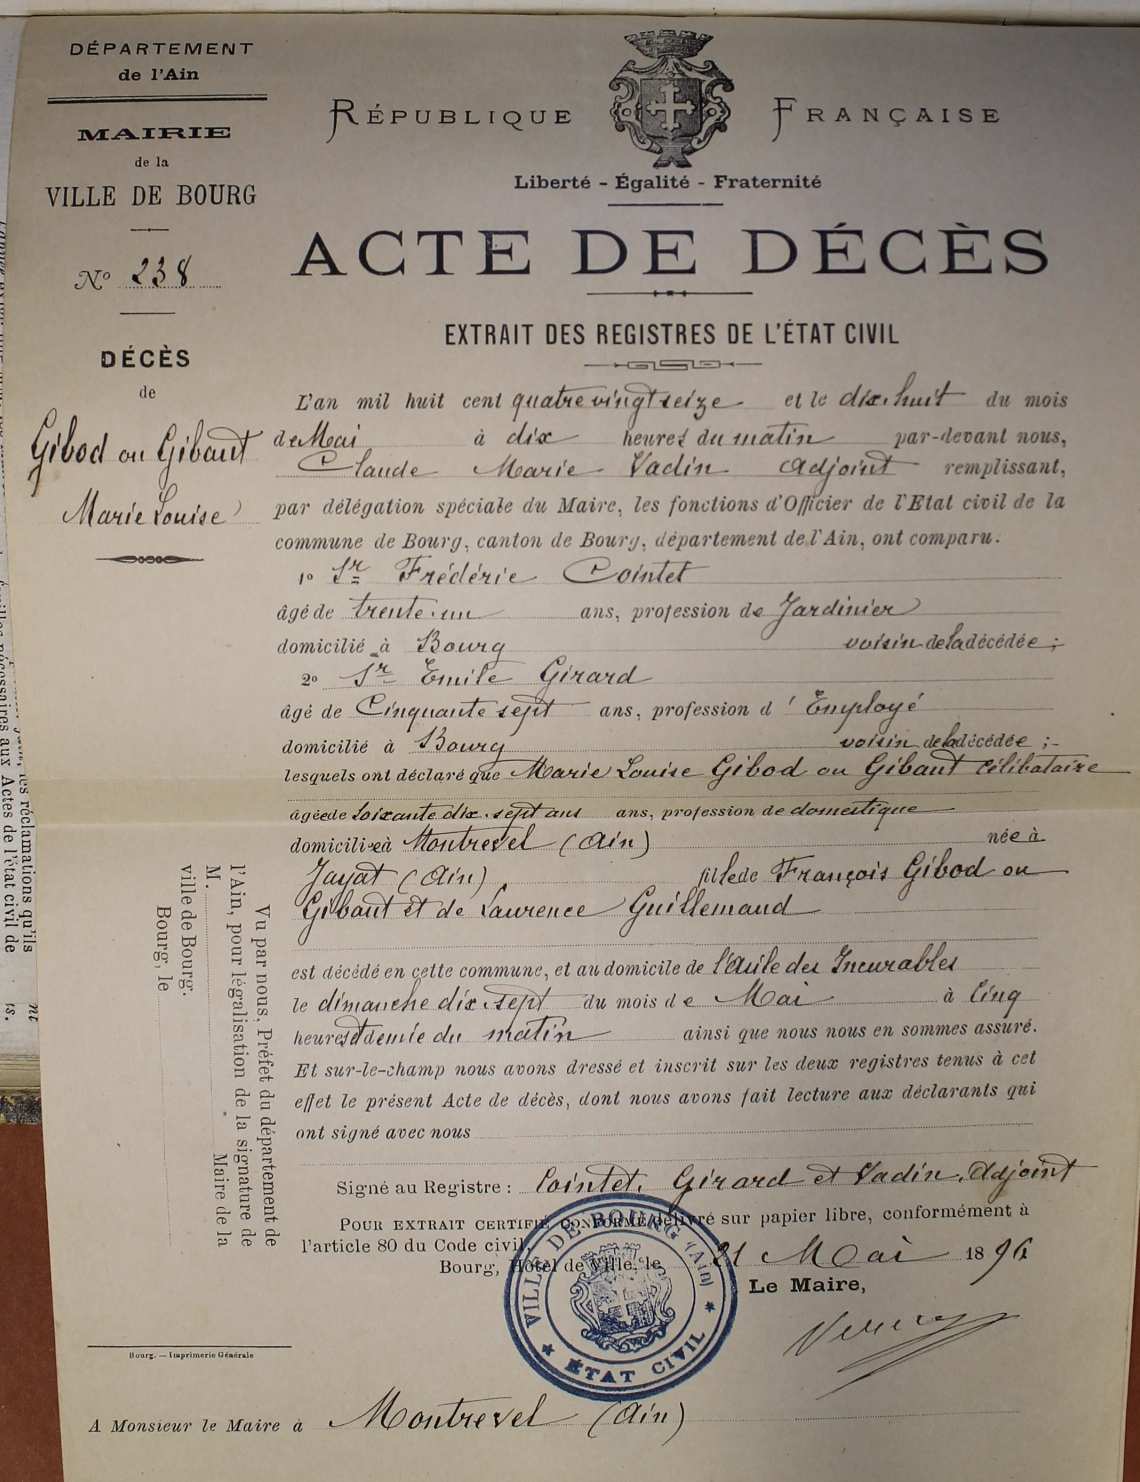 DÉPARTEMENT
de l'Ain
MAIRIE
de la
VILLE DE BOURG
N° 238
DÉCÈS
de
Gibod ou Gibaut
Marie Louise
RÉPUBLIQUE FRANÇAISE
Liberté - Égalité - Fraternité
ACTE DE DÉCÈS
EXTRAIT DES REGISTRES DE L'ÉTAT CIVIL
L'an mil huit cent quatre vingt seize et le dix-huit du mois
de Mai à dix heures du matin par-devant nous,
Claude Marie Vadin adjoint remplissant,
par délégation spéciale du Maire, les fonctions d'Officier de l'Etat civil de la
commune de Bourg, canton de Bourg, département de l'Ain, ont comparu.
1° Sr Frédéric Cointet
âgé de trente-un ans, profession de Jardinier
domicilié à Bourg voisin de la décédée ;
2° Sr Emile Girard
âgé de Cinquante sept ans, profession d'Employé
domicilié à Bourg voisin de la décédée ;-
lesquels ont déclaré que Marie Louise Gibod ou Gibaut célibataire
âgée de soixante dix-sept ans ans, profession de domestique
domiciliée à Montrevel (Ain) née à
Jayat (Ain) fille de François Gibod ou
Gibaut et de Laurence Guillemaud
est décédé en cette commune, et au domicile de l'Asile des Incurables
le dimanche dix-sept du mois de Mai à Cinq
heures et demie du matin ainsi que nous nous en sommes assuré.
Et sur-le-champ nous avons dressé et inscrit sur les deux registres tenus à cet
effet le présent Acte de décès, dont nous avons fait lecture aux déclarants qui
ont signé avec nous
Signé au Registre : Cointet, Girard et Vadin, Adjoint
POUR EXTRAIT CERTIFIÉ CONFORME délivré sur papier libre, conformément à
l'article 80 du Code civil,
Bourg, Hôtel de Ville, le 21 Mai 1896
Le Maire,
VILLE DE BOURG (Ain)
★ ÉTAT CIVIL ★
Vu par nous, Préfet du département de
l'Ain, pour légalisation de la signature de
M. Maire de la
ville de Bourg.
Bourg, le
Bourg. — Imprimerie Générale
A Monsieur le Maire à Montrevel (Ain)
les réclamations qu'ils
feuilles nécessaires aux Actes de l'état civil de